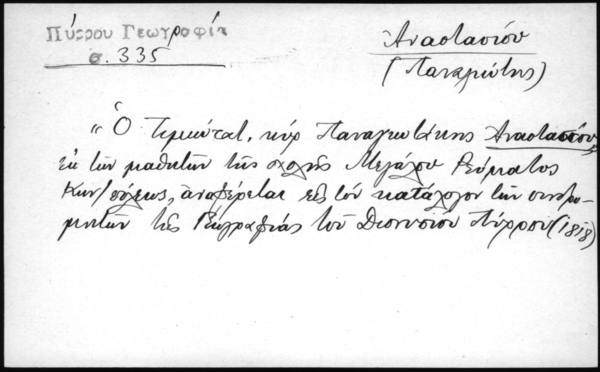 Πύρρου Γεωγραφία
σ. 335
Ἀναστασίου
(Παναγιώτης)
"Ὁ Τιμιώτατ. κύρ Παναγιωτάκης Ἀναστασίου,
ἐκ τῶν μαθητῶν τῆς σχολῆς Μεγάλου Ρεύματος
Κων/πόλεως, ἀναφέρεται εἰς τόν κατάλογον τῶν συνδρο-
μητῶν τῆς Γεωγραφίας τοῦ Διονυσίου Πύρρου (1818)